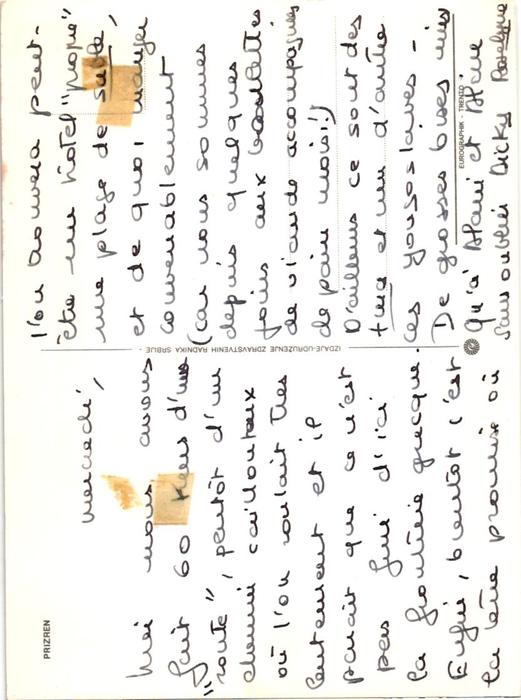 PRIZREN
Mercredi,
Hier nous avons
fait 60 Kms d'une
"route", plutôt d'un
chemin caillouteux
où l'on roulait très
lentement et il
parait que ce n'est
pas fini d'ici
la frontière grecque.
Enfin, bientôt c'est
la terre promise où
IZDAJE-UDRUZENJE ZDRAVSTVENIH RADNIKA SRBIJE -
l'on trouvera peut-
être un hôtel "propre"
une plage de sable,
et de quoi manger
convenablement
(car nous sommes
depuis quelques
jours aux boulettes
de viande accompagnées
de pain moisi!)
D'ailleurs ce sont des
et rien d'autre
ces yougoslaves -
De grosses bises
qu'à et Alain
sans oublier Dicky Roselyne
EUROGRAPHIK - TRENTO